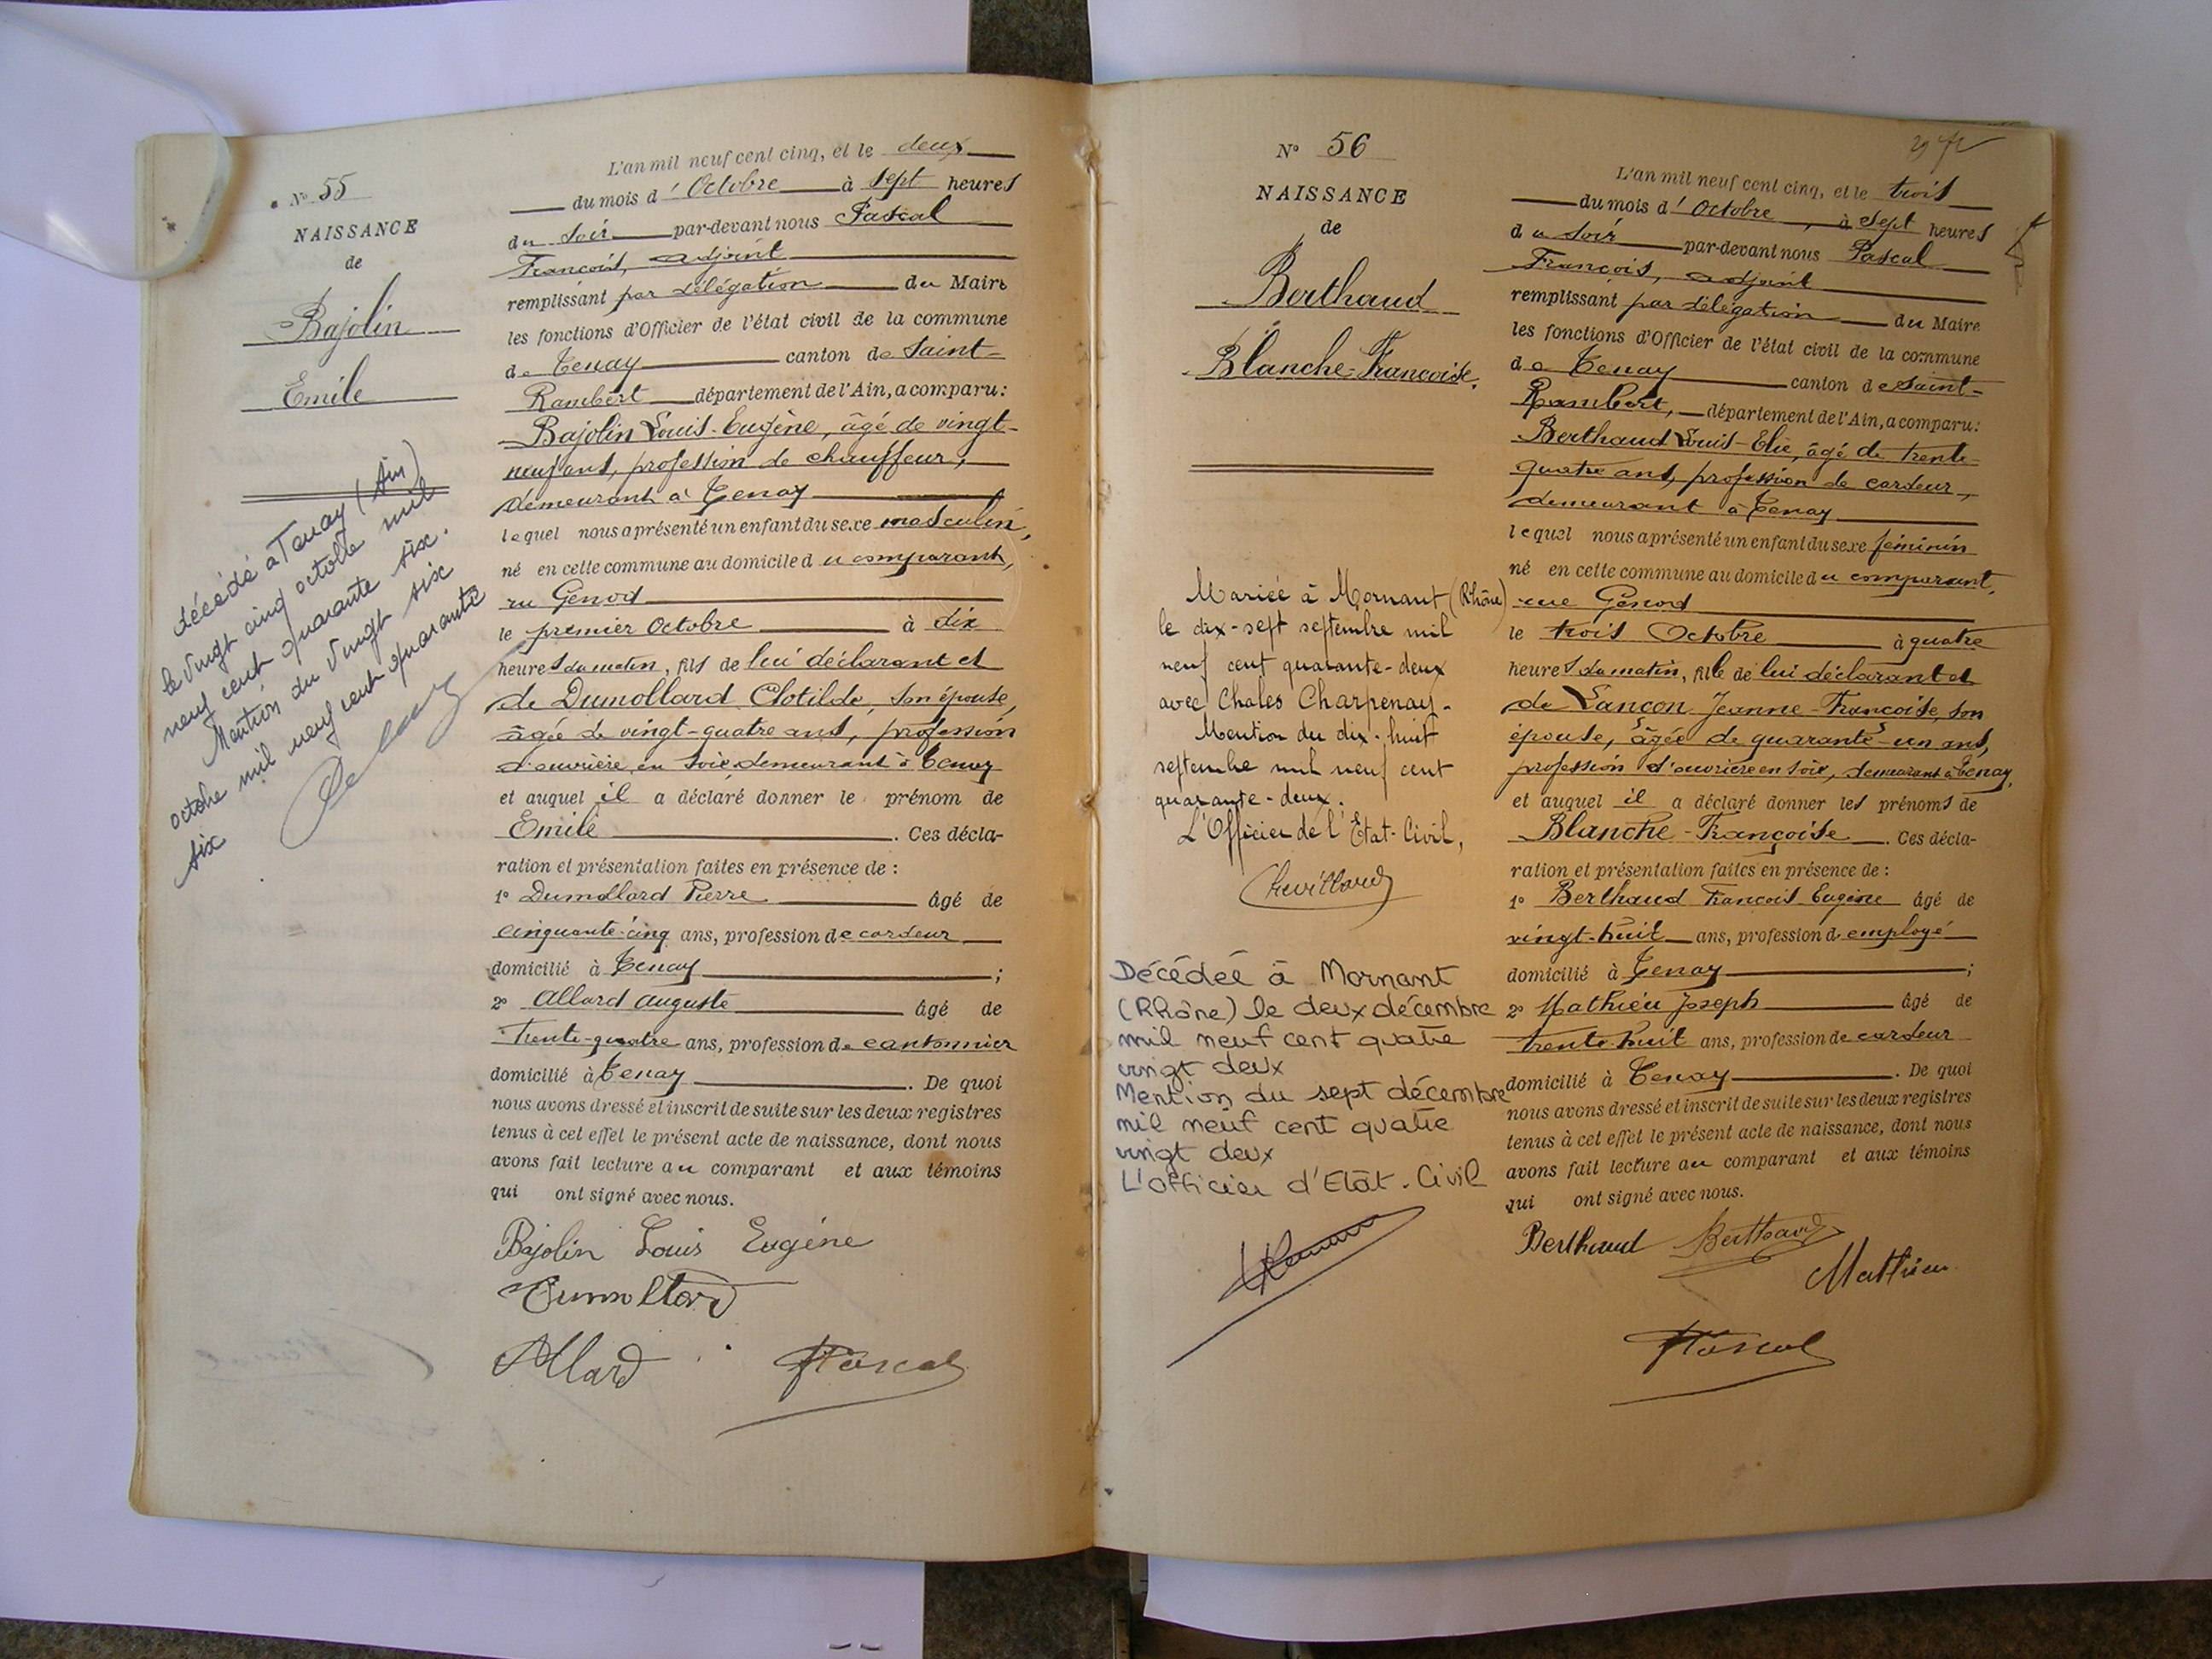 N° 55
NAISSANCE
de
Bajolin
Emile
décédé à Tenay (Ain)
le vingt cinq octobre mil
neuf cent quarante six.
Mention du vingt six
octobre mil neuf cent quarante
six
L'an mil neuf cent cinq, et le deux
du mois d'Octobre à sept heures
du soir par-devant nous Pascal
François, adjoint
remplissant par délégation du Maire
les fonctions d'Officier de l'état civil de la commune
de Tenay canton de Saint-
Rambert département de l'Ain, a comparu :
Bajolin Louis-Eugène, âgé de vingt-
neuf ans, profession de chauffeur,
demeurant à Tenay
lequel nous a présenté un enfant du sexe masculin,
né en cette commune au domicile du comparant,
ru Genod
le premier Octobre à dix
heures du matin, fils de lui déclarant et
de Dumollard Clotilde, son épouse,
âgée de vingt-quatre ans, profession
d'ouvrière en soie demeurant à Tenay
et auquel il a déclaré donner le prénom de
Emile. Ces décla-
ration et présentation faites en présence de :
1° Dumollard Pierre âgé de
cinquante-cinq ans, profession de cardeur
domicilié à Tenay ;
2° Allard Auguste âgé de
trente-quatre ans, profession de cantonnier
domicilié à Tenay. De quoi
nous avons dressé et inscrit de suite sur les deux registres
tenus à cet effet le présent acte de naissance, dont nous
avons fait lecture au comparant et aux témoins
qui ont signé avec nous.
Bajolin Louis Eugène
Dumollard
Allard Pascal
N° 56
NAISSANCE
de
Berthaud
Blanche-Françoise.
Mariée à Mornant (Rhône)
le dix-sept septembre mil
neuf cent quarante-deux
avec Chales Charpenay.
Mention du dix-huit
septembre mil neuf cent
quarante-deux.
L'Officier de l'Etat-Civil,
Chevillard
Décédée à Mornant
(Rhône) le deux décembre
mil neuf cent quatre
vingt deux
Mention du sept décembre
mil neuf cent quatre
vingt deux
L'officier d'Etat-Civil
L'an mil neuf cent cinq, et le trois
du mois d'Octobre, à sept heures
du soir par-devant nous Pascal
François, adjoint
remplissant par délégation du Maire
les fonctions d'Officier de l'état civil de la commune
de Tenay canton de Saint-
Rambert, département de l'Ain, a comparu :
Berthaud Louis-Elie, âgé de trente
quatre ans, profession de cardeur,
demeurant à Tenay
lequel nous a présenté un enfant du sexe féminin
né en cette commune au domicile du comparant,
rue Génod
le trois Octobre à quatre
heures du matin, fille de lui déclarant et
de Lançon Jeanne-Françoise, son
épouse, âgée de quarante-un ans,
profession d'ouvrière en soie, demeurant à Tenay,
et auquel il a déclaré donner les prénoms de
Blanche-Françoise. Ces décla-
ration et présentation faites en présence de :
1° Berthaud François Eugène âgé de
vingt-huit ans, profession d employé
domicilié à Tenay ;
2° Mathieu Joseph âgé de
trente huit ans, profession de cardeur
domicilié à Tenay. De quoi
nous avons dressé et inscrit de suite sur les deux registres
tenus à cet effet le présent acte de naissance, dont nous
avons fait lecture au comparant et aux témoins
qui ont signé avec nous.
Berthaud Berthaud
Mathieu
Pascal